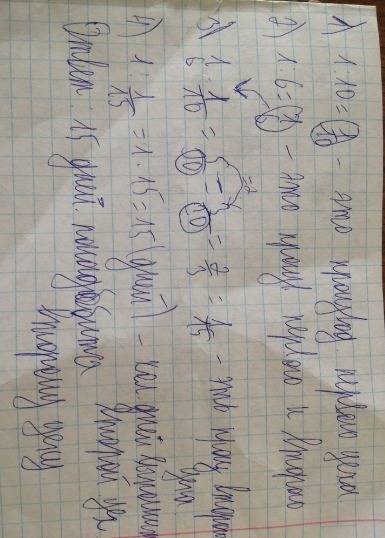 1) 1:10 = 1/10 - это производ. первого цеха
2) 1:6 = 1/6 - это произ. первого и второго
3) 1/6 - 1/10 = = 1/15 - это произ второго
цеха
4) 1 : 1/15 = 1·15 = 15 (дней) - кол. дней выполнит
второй цех
Ответ: 15 дней понадобится
второму цеху